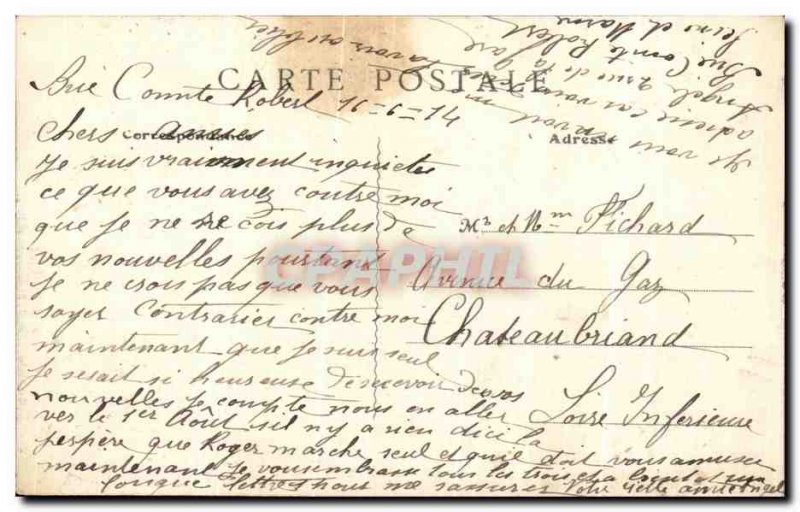 CARTE POSTALE
Correspondance
Adresse
Brie Comte Robert 16=6=14
Chers Amies
Je suis vraiment inquiete
ce que vous avez contre moi
que je ne recois plus de
vos nouvelles pourtant
Je ne crois pas que vous
soyer contrarier contre moi
maintenant que je suis seul
je serait si heureuse de recevoir de vos
nouvelles je compte nous en aller
vers le 1er Août s'il n'y a rien d'ici la
j'espère que Roger marche seul et qu'il doit vous amuser
maintenant je vous embrasse tous les trois
longue lettre pour me rassurer Votre
Mr et Mme Pichard
Avenue du Gaz
Chateaubriand
Loire Inferieure
Je vous
adresse
Angel rue de la Gare
Brie Comte Robert
Seine et Marne
CPAPHIL